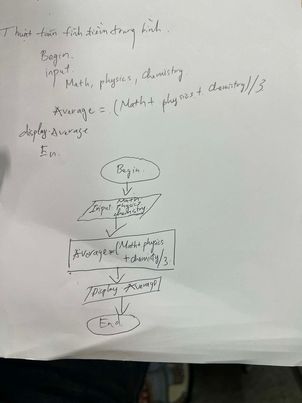 Thuật toán tính điểm trung bình.
Begin.
input.
Math, physics, Chemistry
Average = (Math + physics + Chemistry)/3
display Average
En.
Begin.
Input: Math
physics
chemistry
Average = (Math + physics
+ chemistry)/3.
Display Average
End